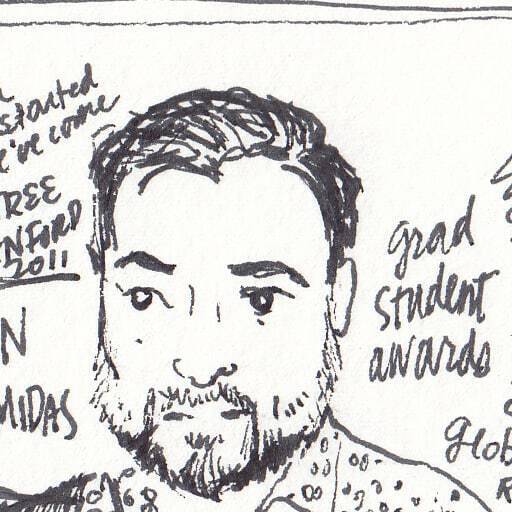 started
we've come
REE
NFORD
2011
N
MIDAS
grad
student
awards
Glob
R